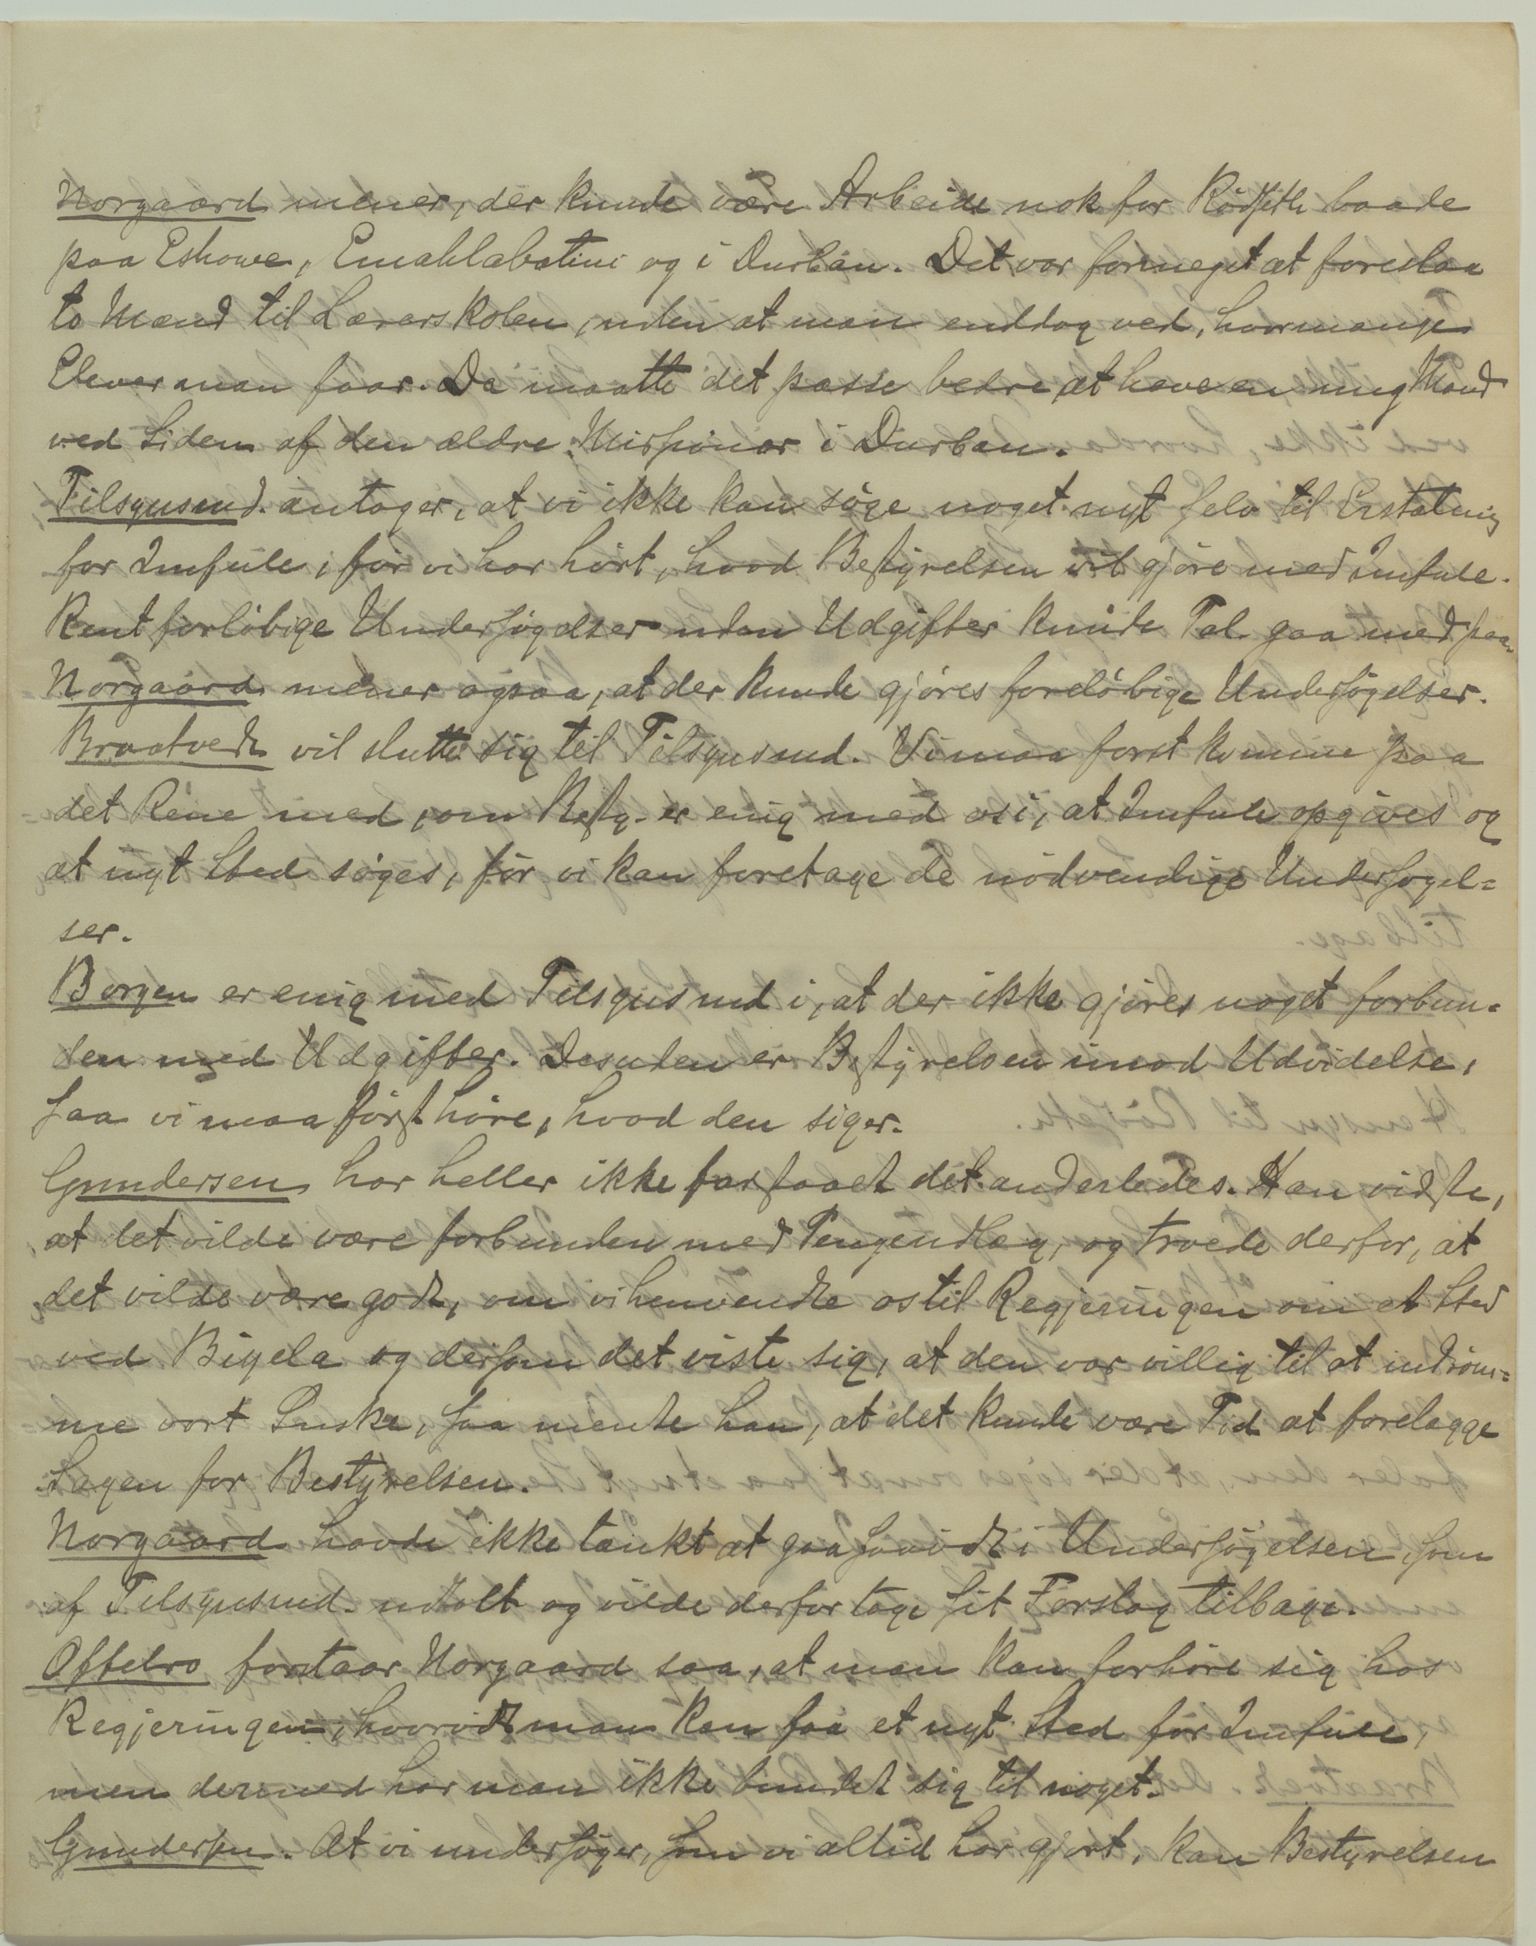 Norgaard mener, der kunde være Arbeide nok for Rödseth baade
paa Eshowe, Emahlabatini og i Durban. Det var formeget at foreslaa
to Mænd til Lærerskolen, uden at man enddog ved, hvormange
Elever man faar. Da maatte det passe bedre at have en ung Mand
ved Siden af den ældre Missionær i Durban.
Tilsynsmd. antager, at vi ikke kan söge noget nyt felt til Erstatning
for Imfule, för vi har hört, hvad Bestyrelsen vil gjöre med Imfule.
Rent forlöbige Undersögelser uden Udgifter kunde Tal. gaa med paa.
Norgaard mener ogsaa, at der kunde gjöres forelöbige Undersögelser.
Braatvedt vil slutte sig til Tilsynsmd. Vi maa först komme paa
det Rene med, om Besty. er enig med os i, at Imfule opgives og
at nyt Sted söges, för vi kan foretage de nödvendige Undersögel=
ser.
Borgen er enig med Tilsynsmd i, at der ikke gjöres noget forbun=
den med Udgifter. Desuden er Bestyrelsen imod Udvidelse,
saa vi maa först höre, hvad den siger.
Gundersen har heller ikke forstaaet det anderledes. Han vidste,
at det vilde være forbunden med Pengeudlæg, og troede derfor, at
det vilde være godt, om vi henvendte os til Regjeringen om et Sted
ved Bigela og dersom det viste sig, at den var villig til at indröm=
me vort Önske, saa mente han, at det kunde være Tid at forelægge
Sagen for Bestyrelsen.
Norgaard havde ikke tænkt at gaa saavidt i Undersögelsen, som
af Tilsynsmd. udtalt og vilde derfor tage sit Forslag tilbage.
Oftebro forstaar Norgaard saa, at man kan forhöre sig hos
Regjeringen, hvorvidt man kan faa et nyt Sted for Imfule,
men dermed har man ikke bundet sig til noget.
Gundersen. At vi undersöger, som vi altid har gjort, kan Bestyrelsen